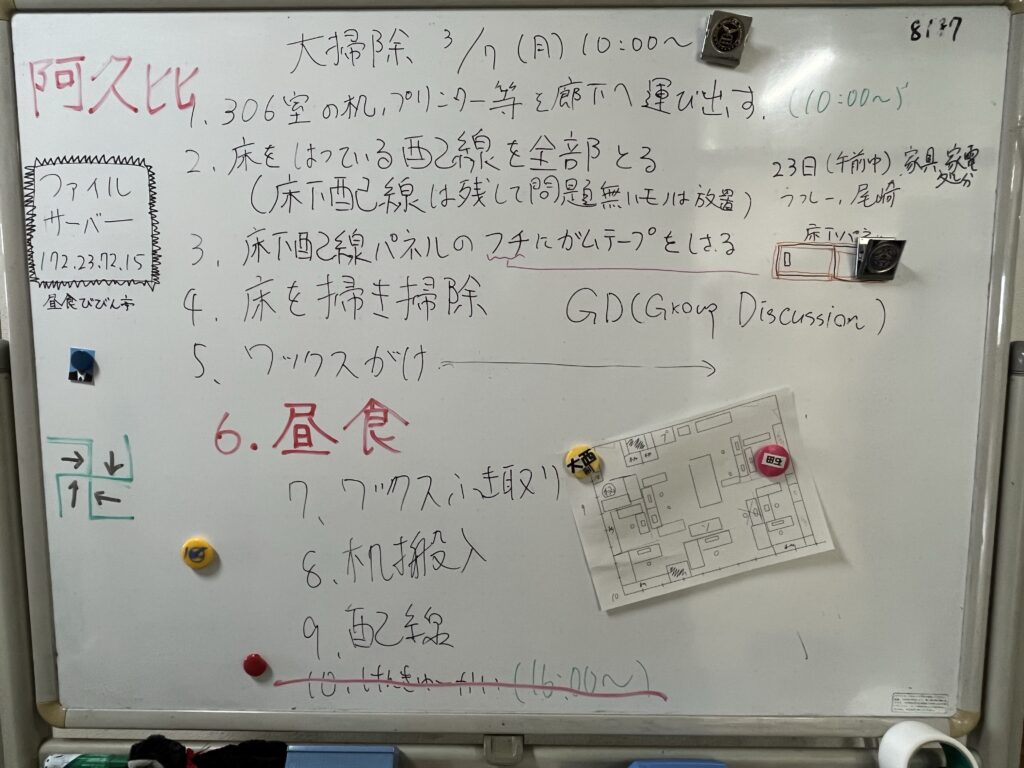 大掃除 3/7 (月) 10:00〜
8137
阿久比
1. 306室の机,プリンター等を廊下へ運び出す. (10:00〜)
2. 床をはっている配線を全部とる
(床下配線は残して問題無いモノは放置)
23日 (午前中) 家具,家電
処分
うっしー, 尾崎
ファイル
サーバー
172.23.72.15
昼食びびん亭
3. 床下配線パネルのフチにガムテープをしさる
床下パネル
4. 床を掃き掃除
GD(Group Discussion)
5. ワックスがけ
6. 昼食
7. ワックスふき取り
大西
8. 机搬入
9. 配線
10. (16:00〜)